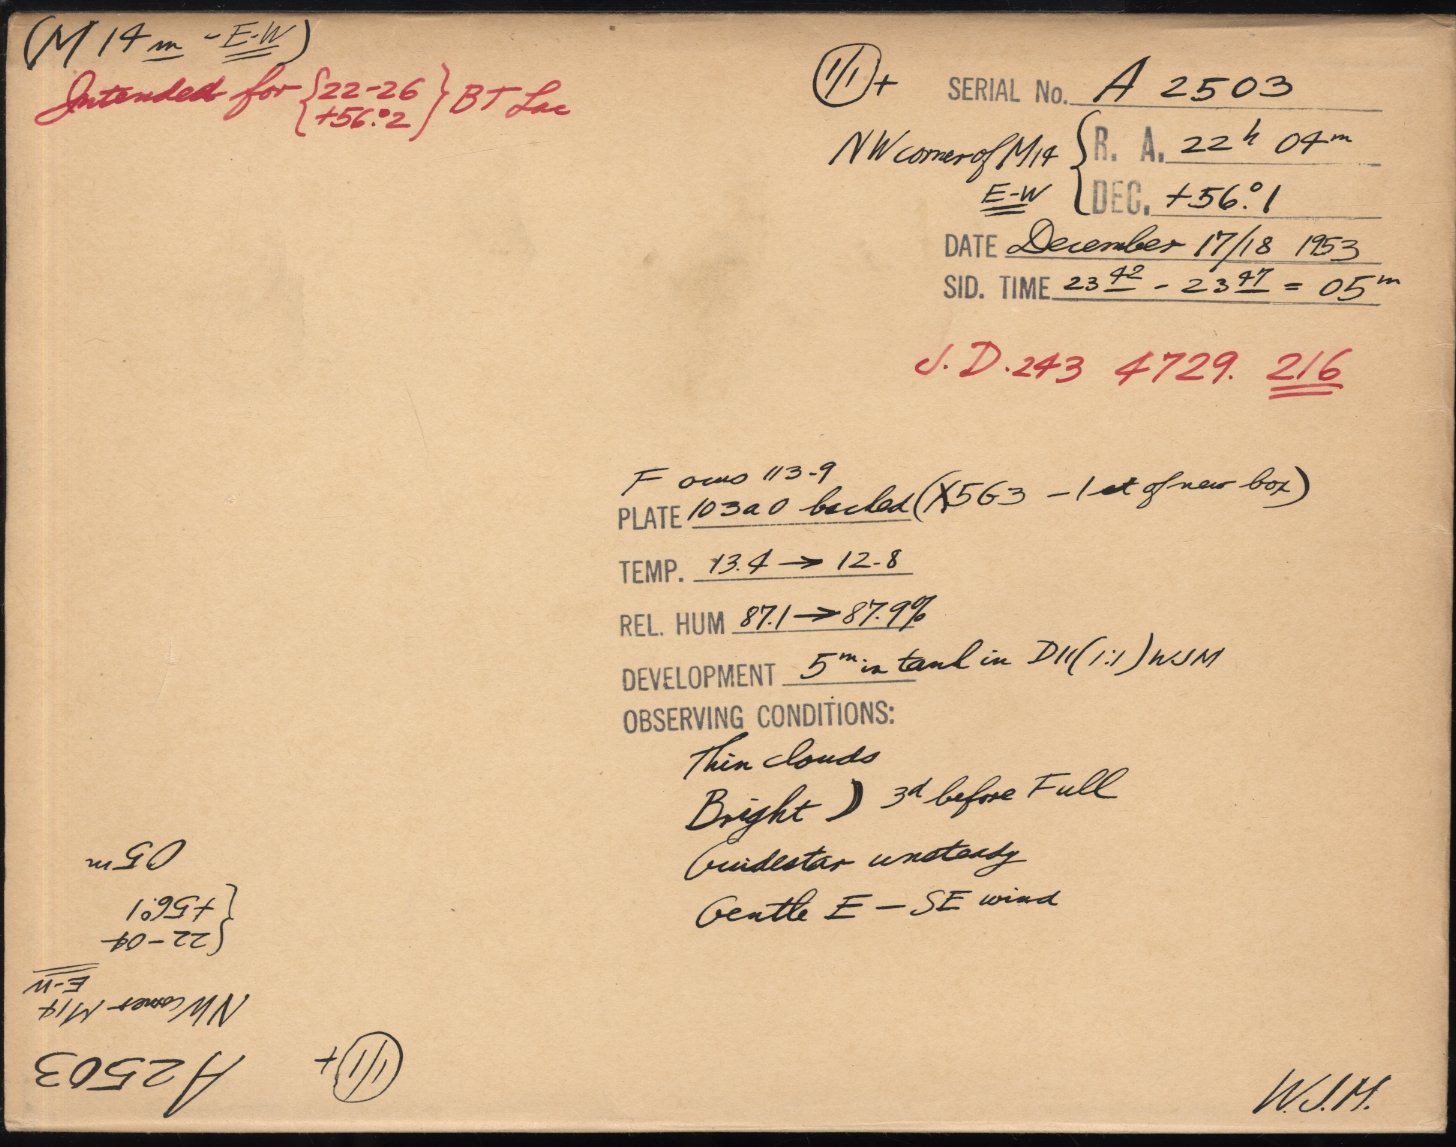 (M 14 m - E-W)
Intended for {22-26 +56.°2} BT Lac
(1/1)+
SERIAL No. A 2503
NW corner of M14 E-W
R. A. 22h 04m
DEC. +56.°1
DATE December 17/18 1953
SID. TIME 23 42 - 23 47 = 05m
J.D. 243 4729. 216
Focus 113-9
PLATE 103a0 backed (X5G3 - 1st of new box)
TEMP. 13.4 → 12.8
REL. HUM 87.1 → 87.9%
DEVELOPMENT 5m in tank in D11(1:1) WJM
OBSERVING CONDITIONS:
Thin clouds
Bright ) 3d before Full
Guidestar unsteady
Gentle E - SE wind
W.J.M.
A2503
(1/1)+
NW corner M14
E-W
{22-04
+56.°1
05m